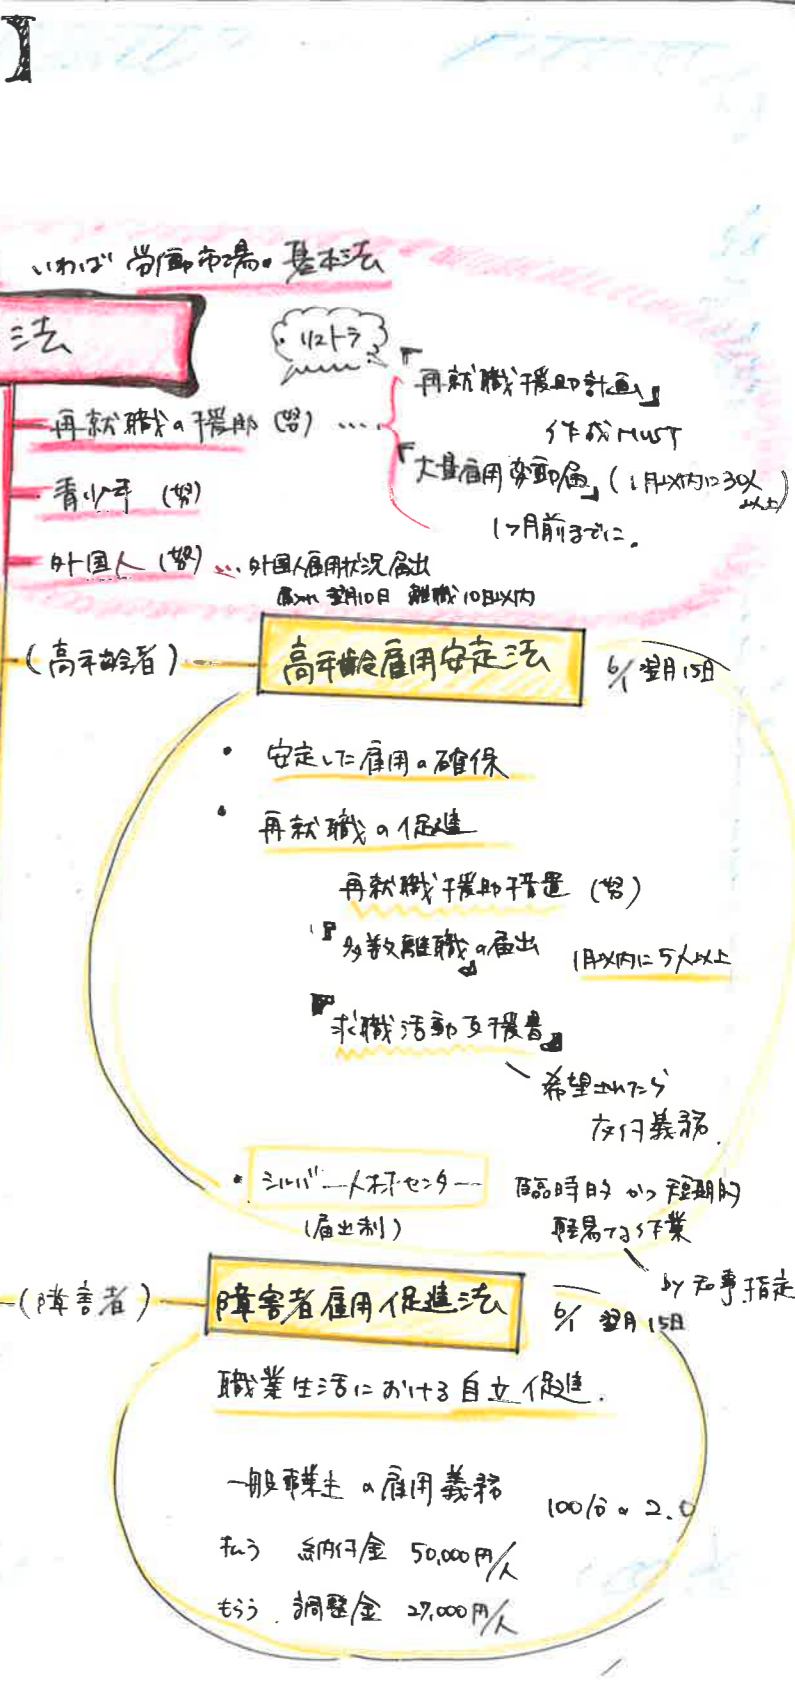 】
いわば 労働市場の基本法
法
リストラ
再就職の援助 (努) ....
『再就職援助計画』
作成MUST
『大量雇用変動届』(1月以内に30人以上)
1ヶ月前までに。
青少年 (努)
外国人 (努) ... 外国人雇用状況届出
雇入れ 翌月10日 離職10日以内
(高年齢者)
高年齢雇用安定法
6/1 翌月15日
・ 安定した雇用の確保
・ 再就職の促進
再就職援助措置 (努)
『多数離職の届出』 1月以内に5人以上
『求職活動支援書』
希望されたら
交付義務.
・ シルバー人材センター 臨時的かつ短期的
(届出制) 軽易な作業
by 知事指定
(障害者)
障害者雇用促進法
6/1 翌月15日
職業生活における自立促進.
一般事業主の雇用義務 100分の2.0
払う 納付金 50,000円/人
もらう 調整金 27,000円/人